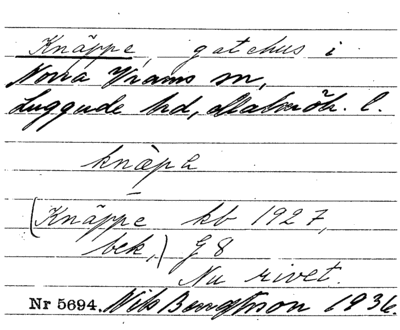 Knäppe, gatehus i
Norra Vrams sn,
Luggude hd, Malmöh. l.
knäpa
(Knäppe kb 1927,
bek,) G 8
Nu rivet.
Nr 5694. Nils Bengtsson 1936.